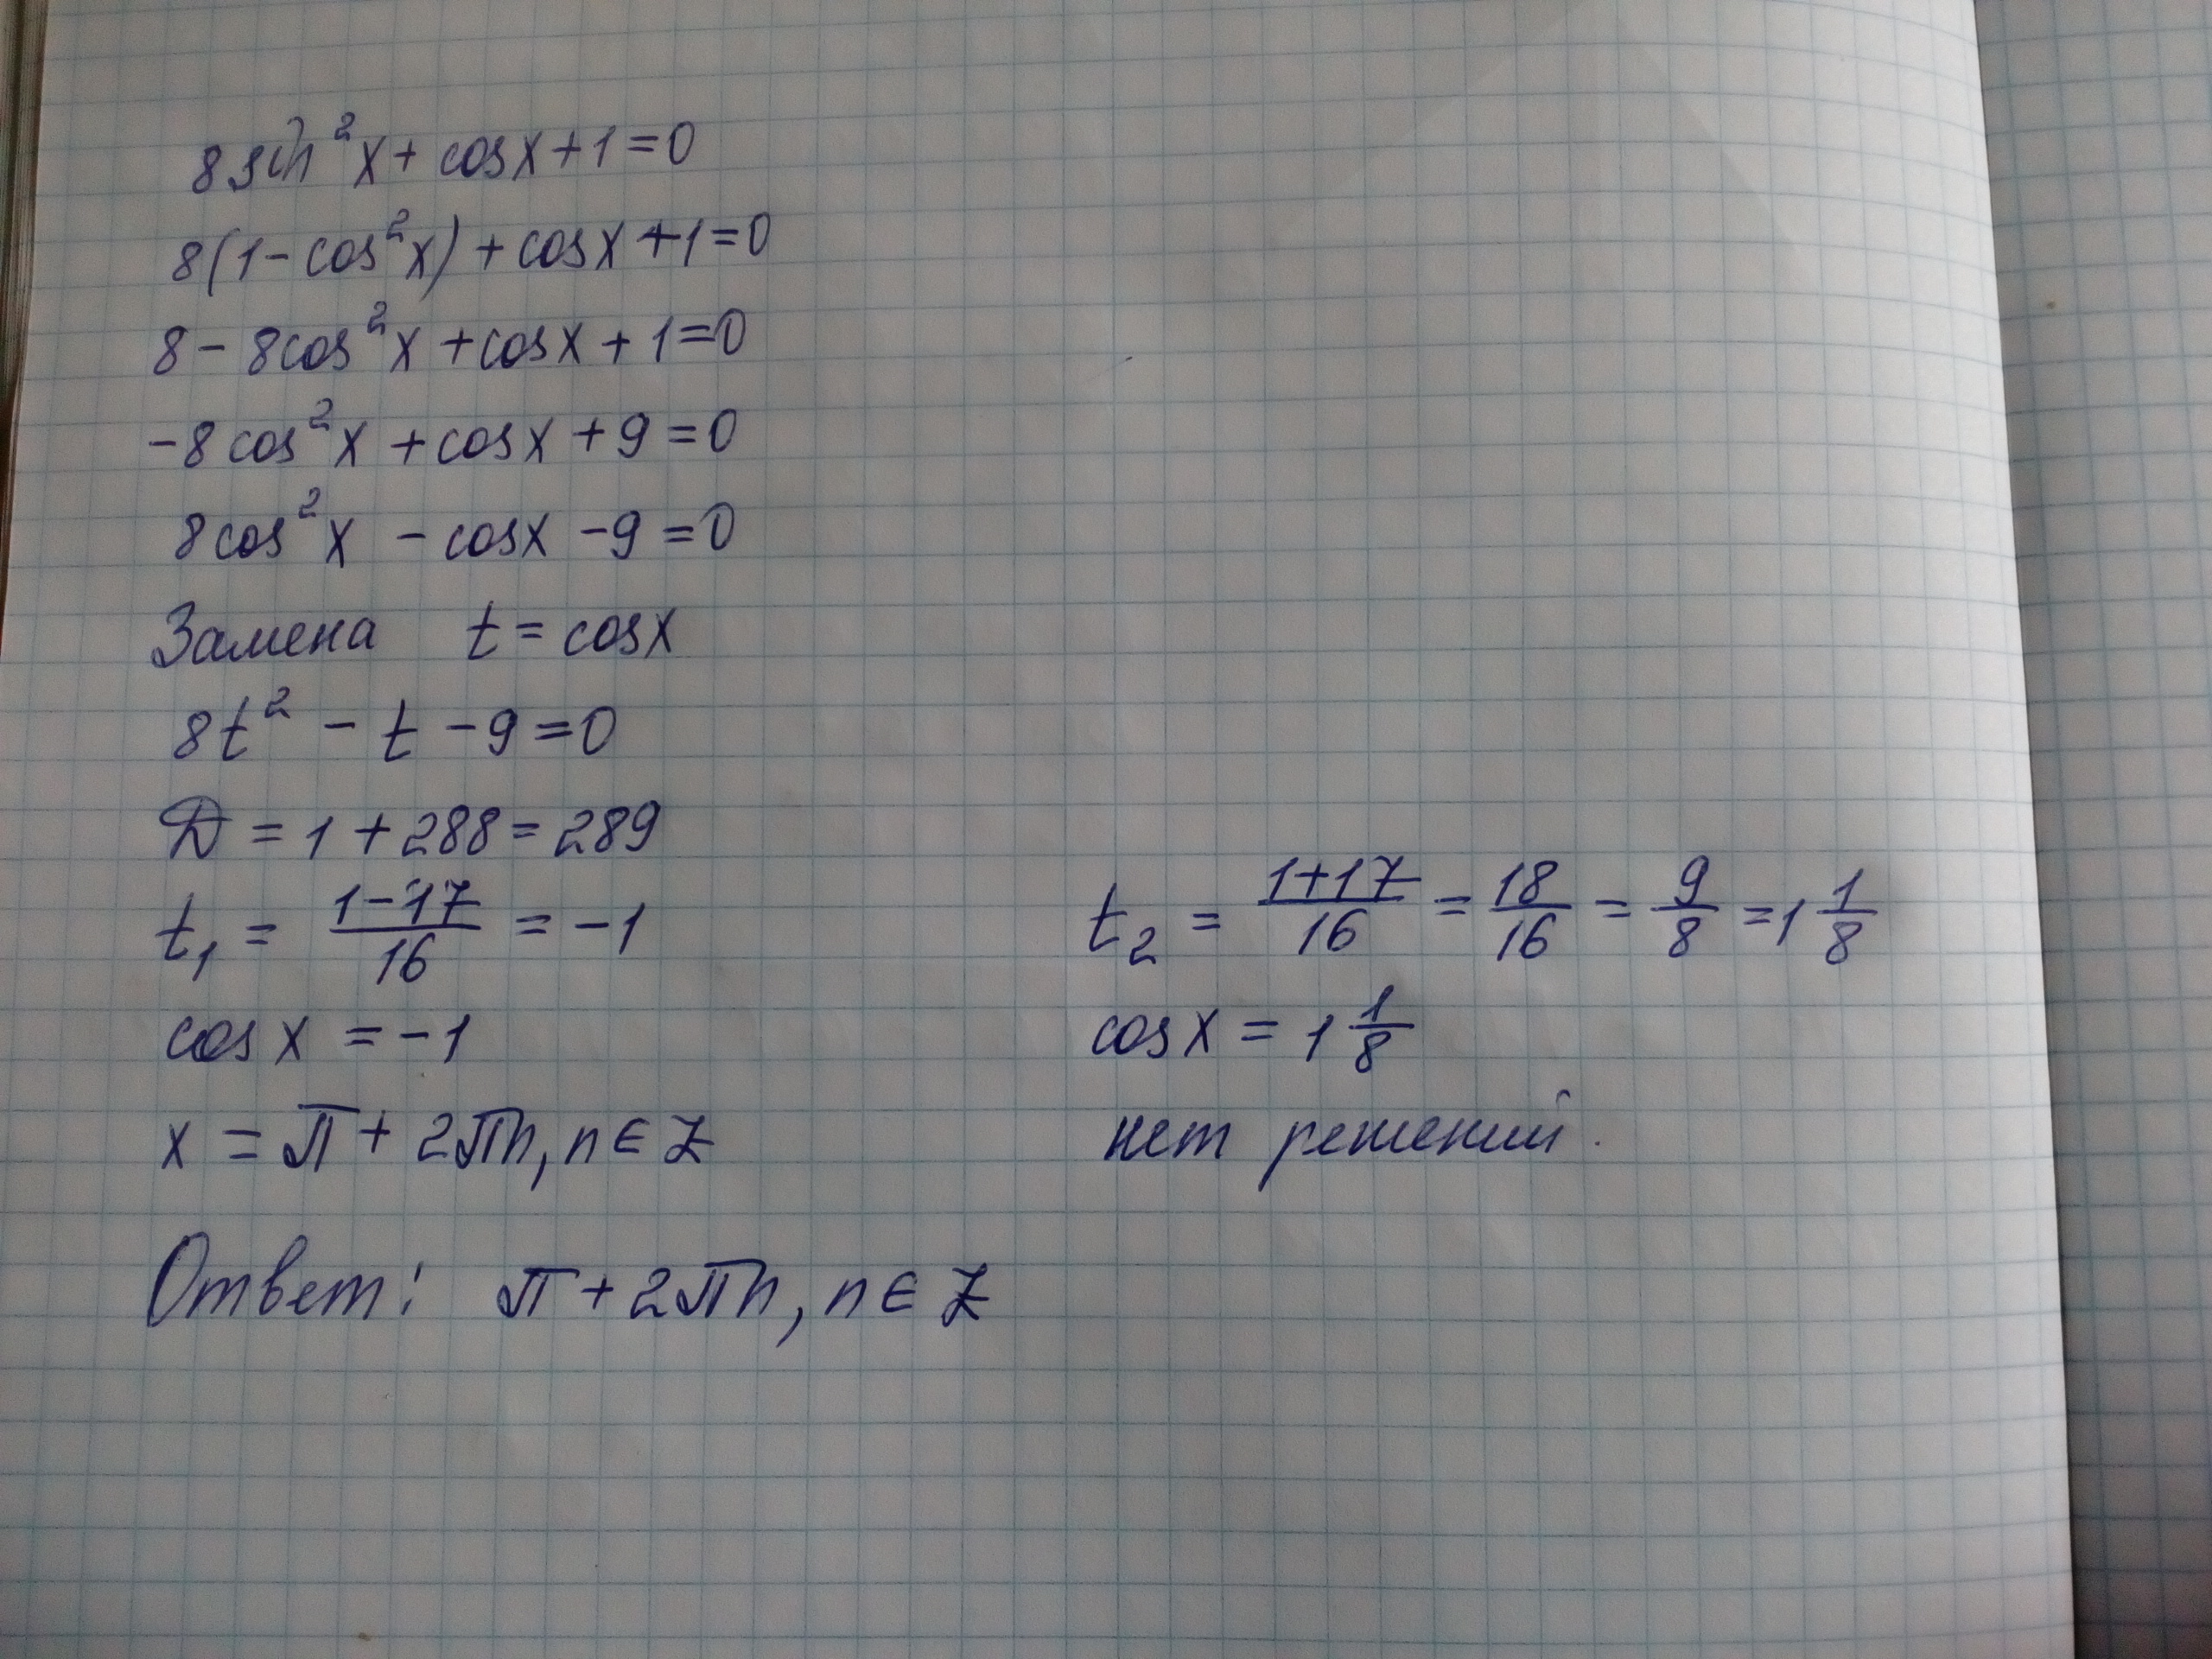 8 sin²x + cosx + 1 = 0
8(1 - cos²x) + cosx + 1 = 0
8 - 8cos²x + cosx + 1 = 0
-8cos²x + cosx + 9 = 0
8cos²x - cosx - 9 = 0
Замена t = cosx
8t² - t - 9 = 0
D = 1 + 288 = 289
t₁ = (1-17)/16 = -1
cosx = -1
x = π + 2πn, n ∈ Z
t₂ = (1+17)/16 = 18/16 = 9/8 = 1 1/8
cosx = 1 1/8
нет решений.
Ответ: π + 2πn, n ∈ Z